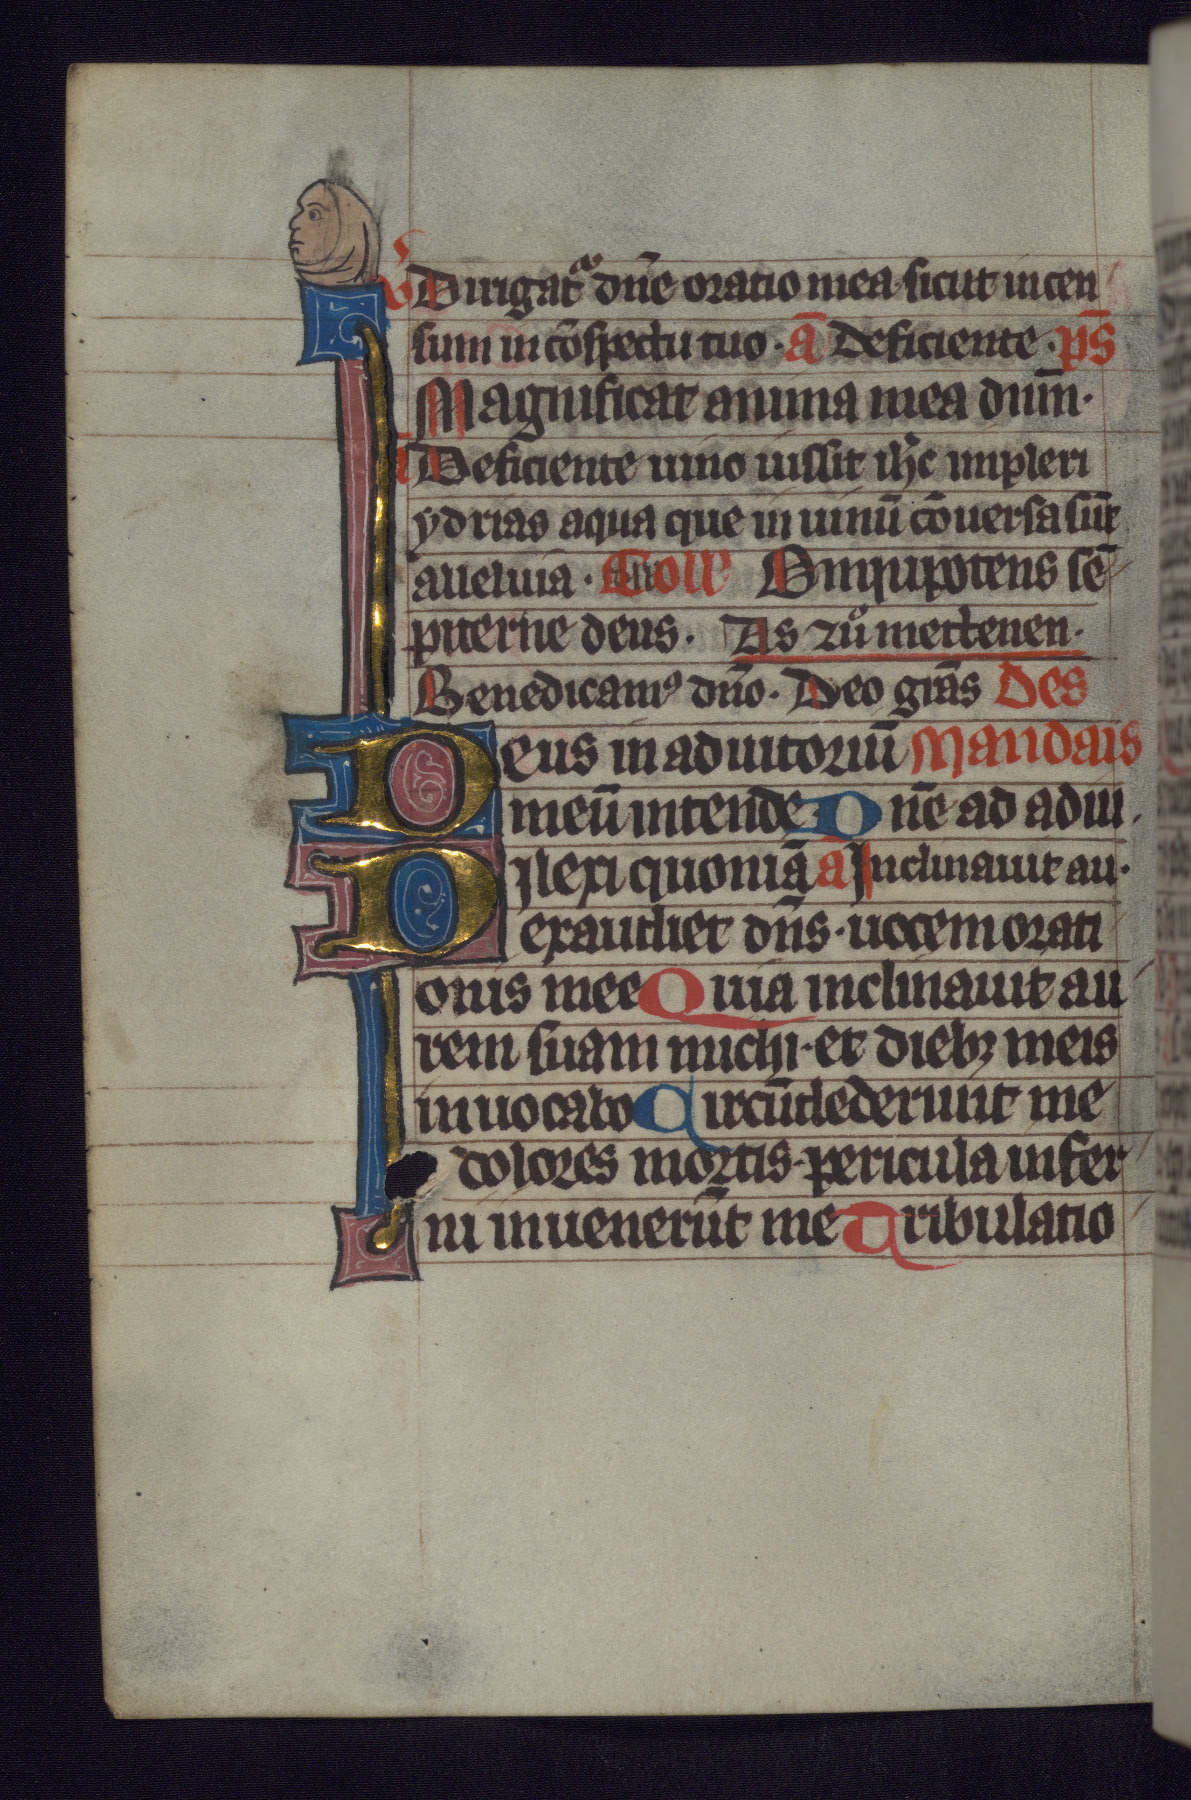 v̕ Dirigat᷑ dn̄e oratio mea sicut incen
sum in cōspectu tuo · ā Deficiente · ps̄
Magnificat anima mea dnm̄ ·
a Deficiente uino iussit ih̄c impleri
ydrias aqua que in uinū cōuersa sūt
alleluia · Coll Omnipotens sē
piterne deus · Als zů mettenen ·
Benedicamꝰ dn̄o · Deo grās Des
Deus in adiutoriū Mandais
meū intende Dn̄e ad adiu.
Dilexi quoniā ā Inclinauit au ·
exaudiet dn̄s · uocem orati
onis mee Quia inclinauit au
rem suam michi · et diebꝫ meis
inuocabo Circūdederunt me
dolores mortis · pericula infer
ni inuenerūt me Tribulatio